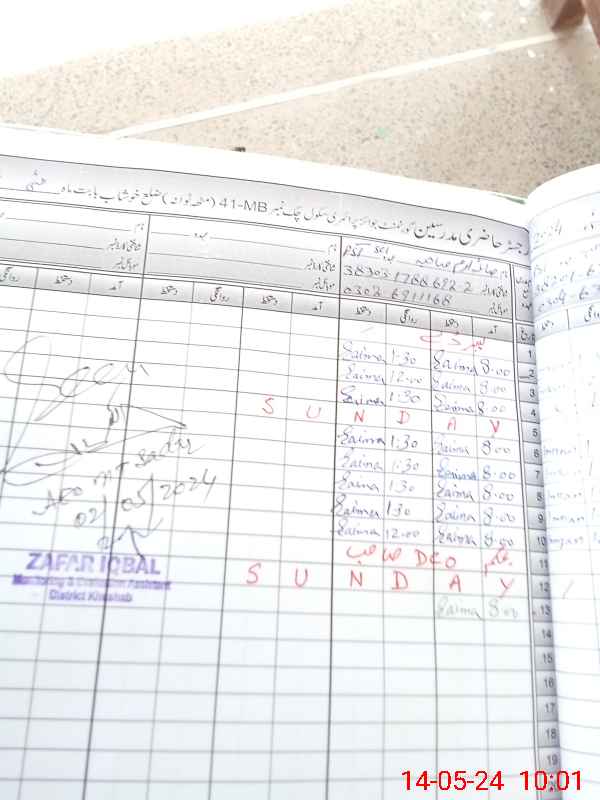 رجسٹر حاضری مدرسین گورنمنٹ بوائز پرائمری سکول چک نمبر 41-MB (مٹھہ ٹوانہ) ضلع خوشاب بابت ماہ مئی
نام
عہدہ
نام صائمہ ارم صاحبہ عہدہ PST
شناختی کارڈ نمبر
شناختی کارڈ نمبر 38303 1768692-2
موبائل نمبر
موبائل نمبر 0302 6911168
تاریخ آمد دستخط روانگی دستخط آمد دستخط روانگی دستخط آمد دستخط روانگی
1
2 8:00 Saima 1:30 Saima
3 8:00 Saima 12:00 Saima
4 8:00 Saima 1:30 Saima
5 S U N D A Y
6 8:00 Saima 1:30 Saima
7 8:00 Saima 1:30 Saima
8 8:00 Saima 1:30 Saima
9 8:00 Saima 1:30 Saima
10 8:00 Saima 12:00 Saima
11 بحکم DEO صاحب
12 S U N D A Y
13 8:00 Saima
14
15
16
17
18
19
Seen
02/05/2024
ZAFAR IQBAL
Monitoring & Evaluation Assistant
District Khushab
14-05-24 10:01